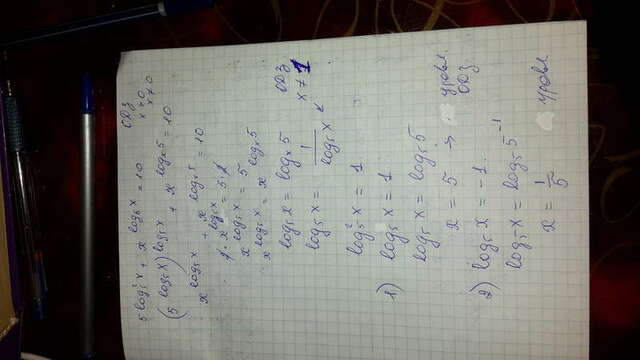 5^{log₅² x} + x^{log₅ x} = 10
ОДЗ
x > 0
x ≠ 0
(5^{log₅ x})^{log₅ x} + x^{log₅ x} = 10
x^{log₅ x} + x^{log₅ x} = 10
x^{log₅ x} = 5
x^{log₅ x} = 5
x^{log₅ x} = x^{logₓ 5}
log₅ x = logₓ 5
ОДЗ
log₅ x = 1/log₅ x
x ≠ 1
log₅² x = 1
1) log₅ x = 1
log₅ x = log₅ 5
x = 5 → удовл. ОДЗ
2) log₅ x = -1
log₅ x = log₅ 5^{-1}
x = 1/5 удовл